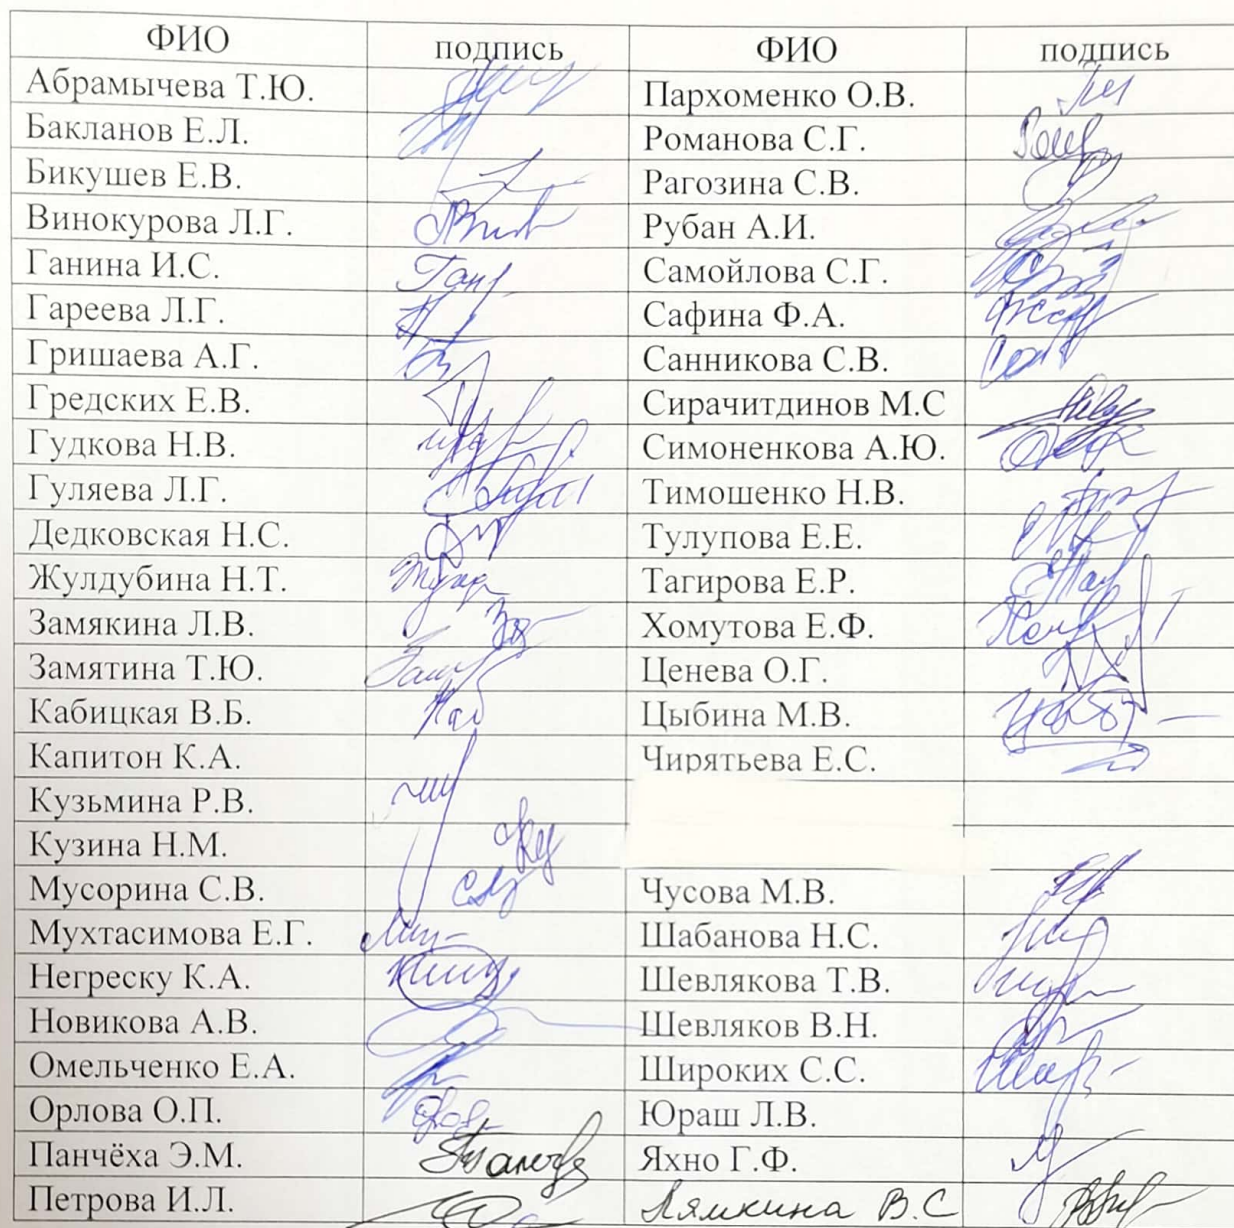 ФИО подпись ФИО подпись
Абрамычева Т.Ю. Пархоменко О.В.
Бакланов Е.Л. Романова С.Г.
Бикушев Е.В. Рагозина С.В.
Винокурова Л.Г. Рубан А.И.
Ганина И.С. Самойлова С.Г.
Гареева Л.Г. Сафина Ф.А.
Гришаева А.Г. Санникова С.В.
Гредских Е.В. Сирачитдинов М.С
Гудкова Н.В. Симоненкова А.Ю.
Гуляева Л.Г. Тимошенко Н.В.
Дедковская Н.С. Тулупова Е.Е.
Жулдубина Н.Т. Тагирова Е.Р.
Замякина Л.В. Хомутова Е.Ф.
Замятина Т.Ю. Ценева О.Г.
Кабицкая В.Б. Цыбина М.В.
Капитон К.А. Чирятьева Е.С.
Кузьмина Р.В.
Кузина Н.М.
Мусорина С.В. Чусова М.В.
Мухтасимова Е.Г. Шабанова Н.С.
Негреску К.А. Шевлякова Т.В.
Новикова А.В. Шевляков В.Н.
Омельченко Е.А. Широких С.С.
Орлова О.П. Юраш Л.В.
Панчёха Э.М. Яхно Г.Ф.
Петрова И.Л. Лямкина В.С